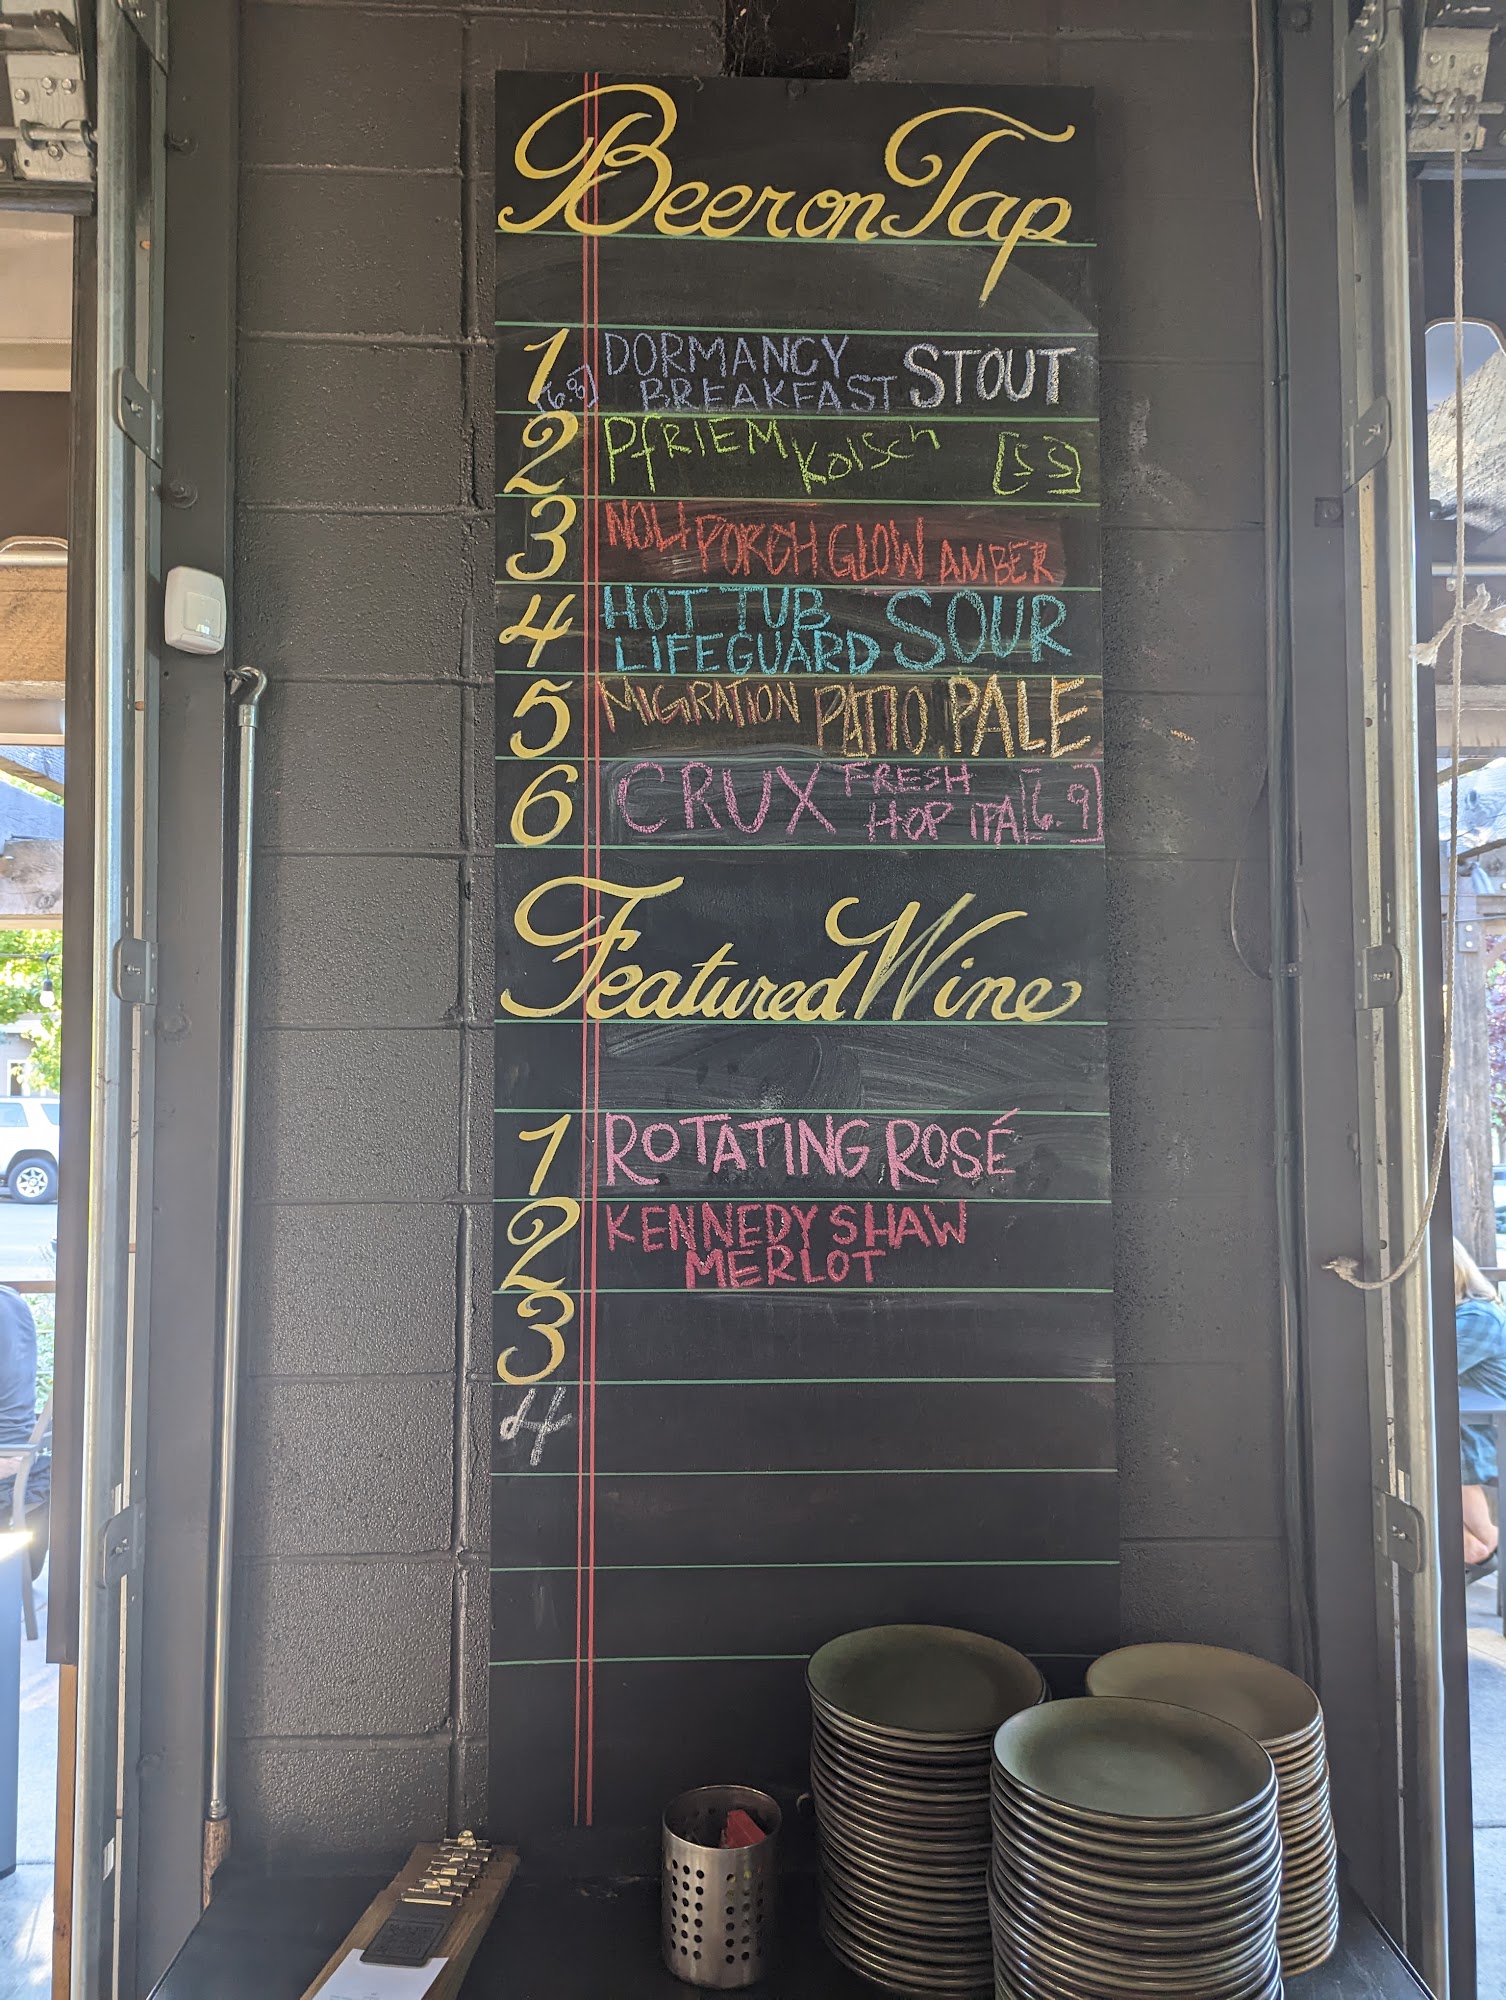 Beer on Tap
1 DORMANCY BREAKFAST STOUT
[6.8]
2 PfRIEM Kolsch [5.5]
3 NOLI PORCH GLOW AMBER
4 HOT TUB LIFEGUARD SOUR
5 MIGRATION PATIO PALE
6 CRUX FRESH HOP IPA [6.9]
Featured Wine
1 ROTATING ROSÉ
2 KENNEDY SHAW
MERLOT
3
4